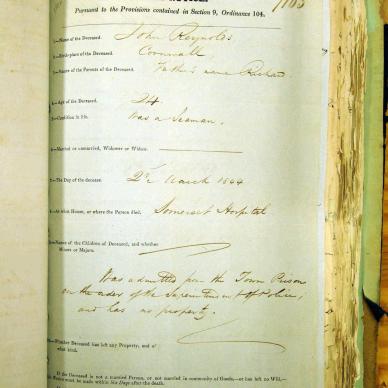 Pursuant to the Provisions contained in Section 9, Ordinance 104.
1.—Name of the Deceased. John Reynolds
2.—Birth-place of the Deceased. Cornwall
3.—Names of the Parents of the Deceased. Father's name Richard
4.—Age of the Deceased. 24
5.—Condition in life. Was a Seaman.
6.—Married or unmarried, Widower or Widow.
7.—The Day of the decease. 2d March 1844
8.—At what House, or where the Person died. Somerset Hospital
9.—Names of the Children of Deceased, and whether
Minors or Majors.
Was admitted from the Town Prison
on the order of the Superintendent of Police,
and has no property.
10.—Whether Deceased has left any Property, and of
what kind.
If the Deceased is not a married Person, or not married in community of Goods,—or has left no Will,—
must be made within Six Days after the death.